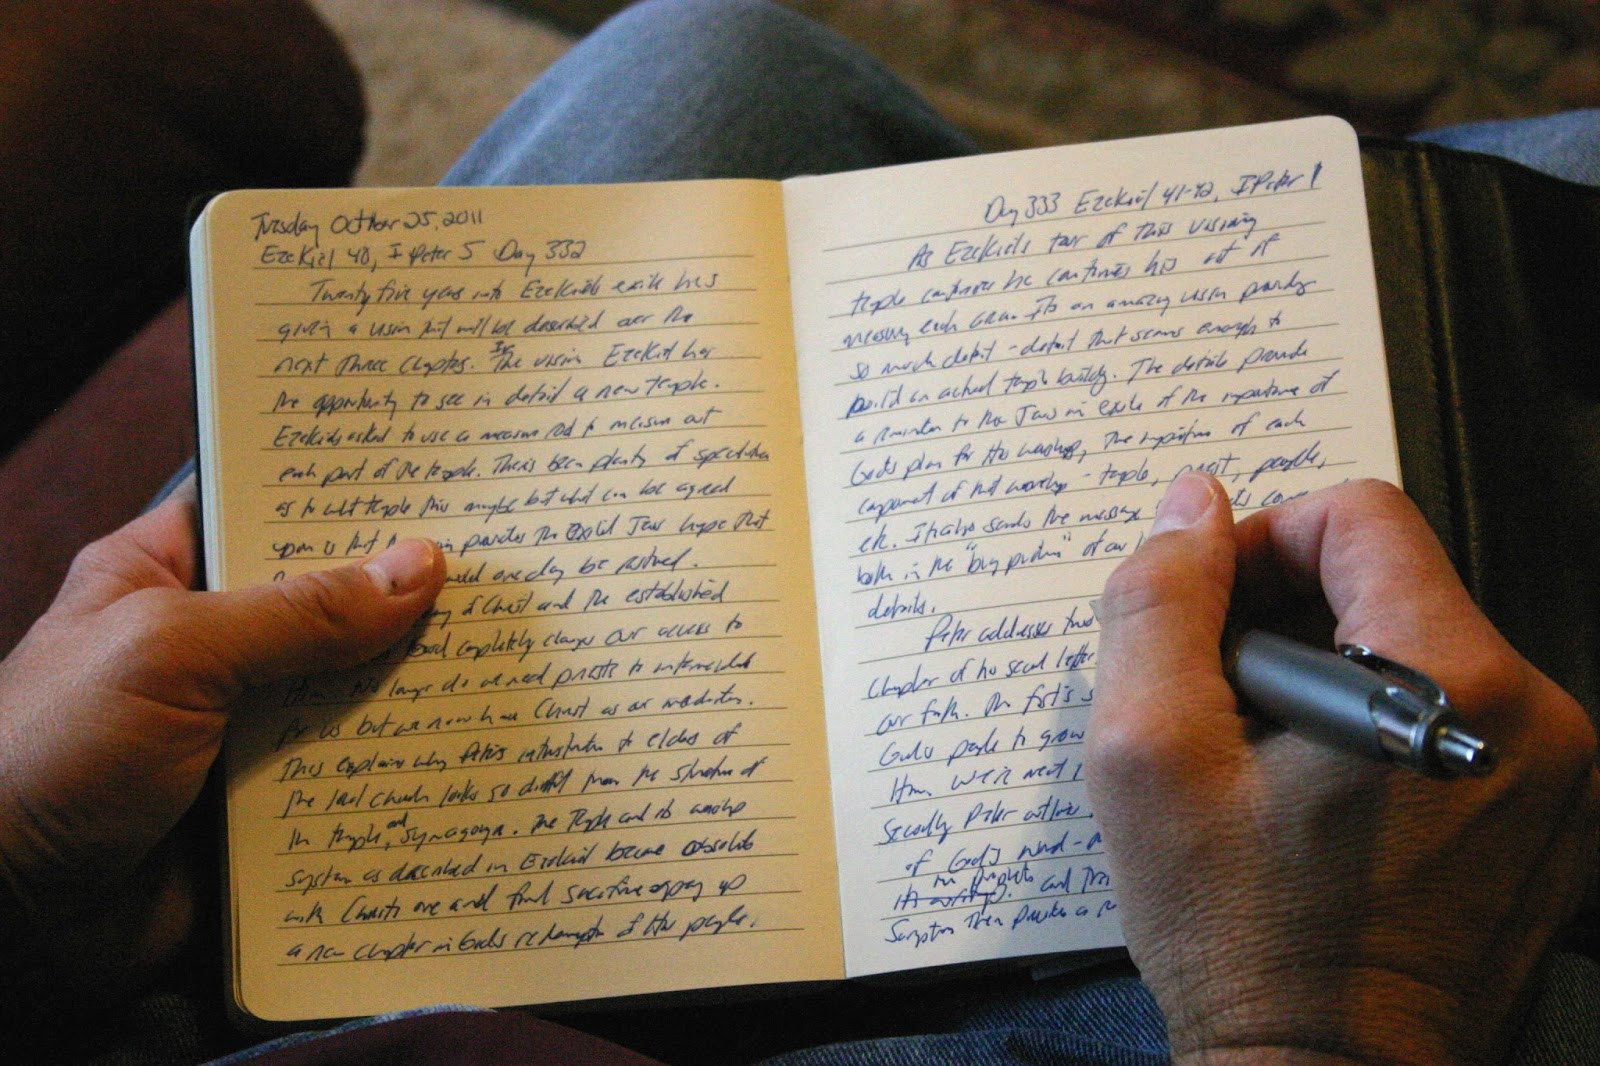 Tuesday October 25, 2011
Ezekiel 40, I Peter 5 Day 332
Twenty five years into Ezekiel's exile he's
given a vision that will be described over the
next three chapters. In The vision Ezekiel has
the opportunity to see in detail a new temple.
Ezekiel's asked to use a measure rod to measure out
each part of the temple. There's been plenty of speculation
as to what temple this maybe but what can be agreed
upon is that provides the exiled Jews hope that
one day be restored.
of Christ and the established
completely changes our access to
Him. No longer do we need priests to
for us but we now have Christ as our mediator.
This explains why Peter's instruction to elders of
the local church looks so different from the structure of
the temple and synagogue. The Temple and its worship
system as described in Ezekiel became obsolete
with Christ's one and final sacrifice opening up
a new chapter in God's redemption of His people.
Day 333 Ezekiel 41-42, I Peter 1
As Ezekiel's tour of this visionary
temple continues he continues his out of
measuring each area. Its an amazing vision providing
so much detail - detail that seems enough to
build an actual temple building. The details provide
a reminder to the Jews in exile of the importance of
God's plan for His worship, the importance of each
component of that worship - temple, priest, people,
etc. It also sends the message
both in the "big picture" of our
details.
Peter addresses two
chapter of his second letter.
our faith. The first is
God's people to grow
Him. We're next
Secondly Peter outlines
of God's word -
its the prophets and
Scripture Then provides a